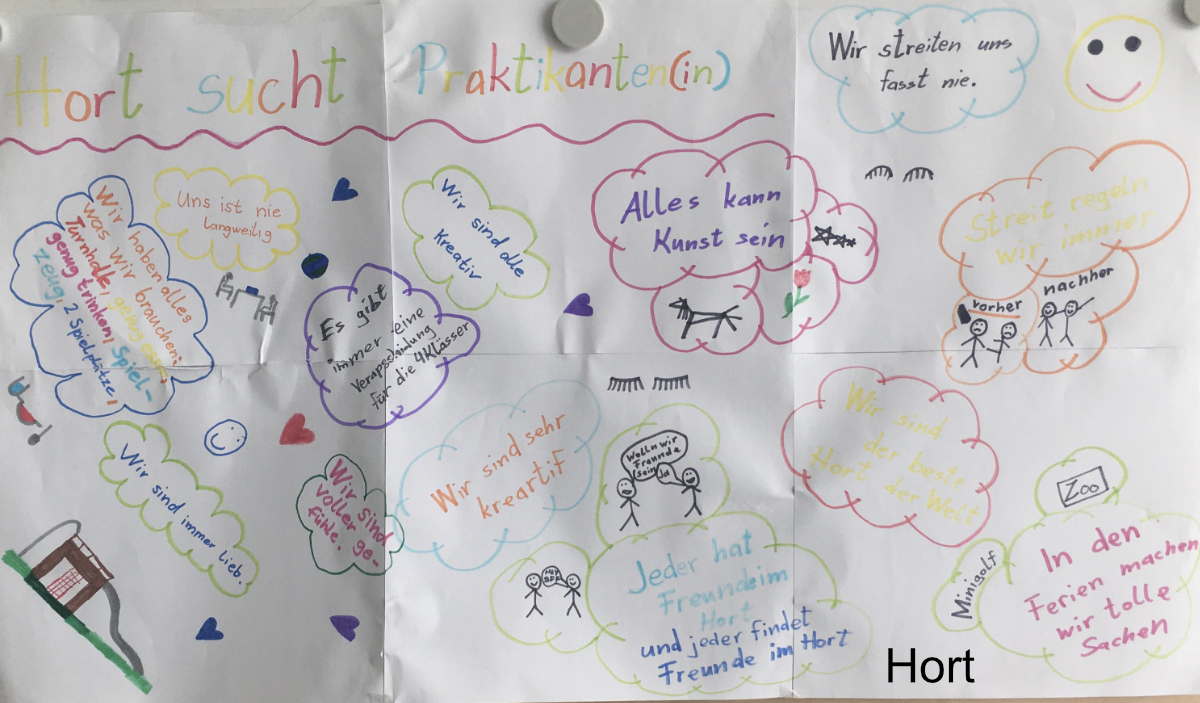 Hort sucht Praktikanten(in)
Wir streiten uns
fasst nie.
Wir haben alles
was wir brauchen:
Turnhalle, genug essen,
genug trinken, Spiel-
zeug, 2 Spielplätze,
Uns ist nie
langweilig
Es gibt
immer eine
Verapschidung
für die 4Klässer
Wir sind alle
Kreativ
Alles kann
Kunst sein
Streit regeln
wir immer
vorher
nachher
Wir sind immer lieb.
Wir sind
voller ge-
fühle.
Wir sind sehr
kreartiF
Wolln wir
Freunde
sein
Ja
Jeder hat
Freunde im
Hort
und jeder findet
Freunde im Hort
Wir sind
der beste
Hort der Welt
Zoo
Minigolf
In den
Ferien machen
wir tolle
Sachen
Hort